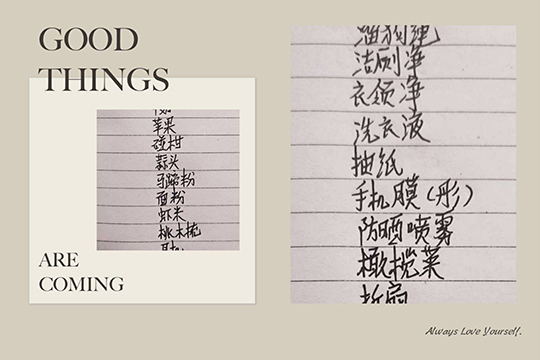 GOOD
THINGS
苹果
碰柑
蒜头
牙签粉
面粉
虾米
桃木梳
ARE
COMING
遛狗绳
洁厕净
衣领净
洗衣液
抽纸
手机膜（彤）
防晒喷雾
橄榄菜
折扇
Always Love Yourself.